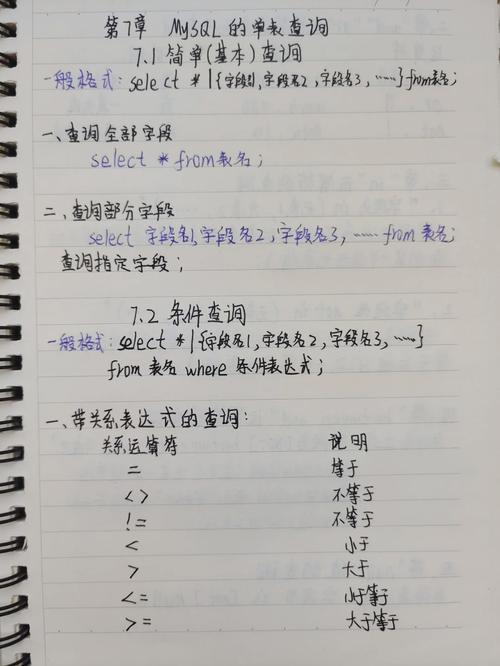 第7章 MySQL的单表查询
7.1 简单(基本)查询
一般格式: select *|{字段名1,字段名2,字段名3,……}from表名;
一、查询全部字段
select * from表名;
二、查询部分字段
select 字段名1,字段名2,字段名3,…… from 表名;
查询指定字段;
7.2 条件查询
一般格式: select *|{字段名1,字段名2,字段名3,……}
from 表名 where 条件表达式;
一、带关系表达式的查询:
关系运算符 说明
= 等于
<> 不等于
!= 不等于
< 小于
> 大于
<= 小于等于
>= 大于等于